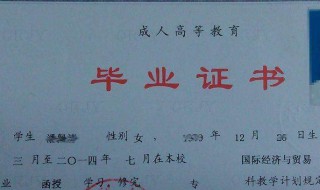 成人高等教育
毕业证书
学生 性别 女, 年 12 月 26 日生
三 月至二〇一四年 七 月在本校 国际经济与贸易
业 函授 学习,修完 专 科教学计划规定